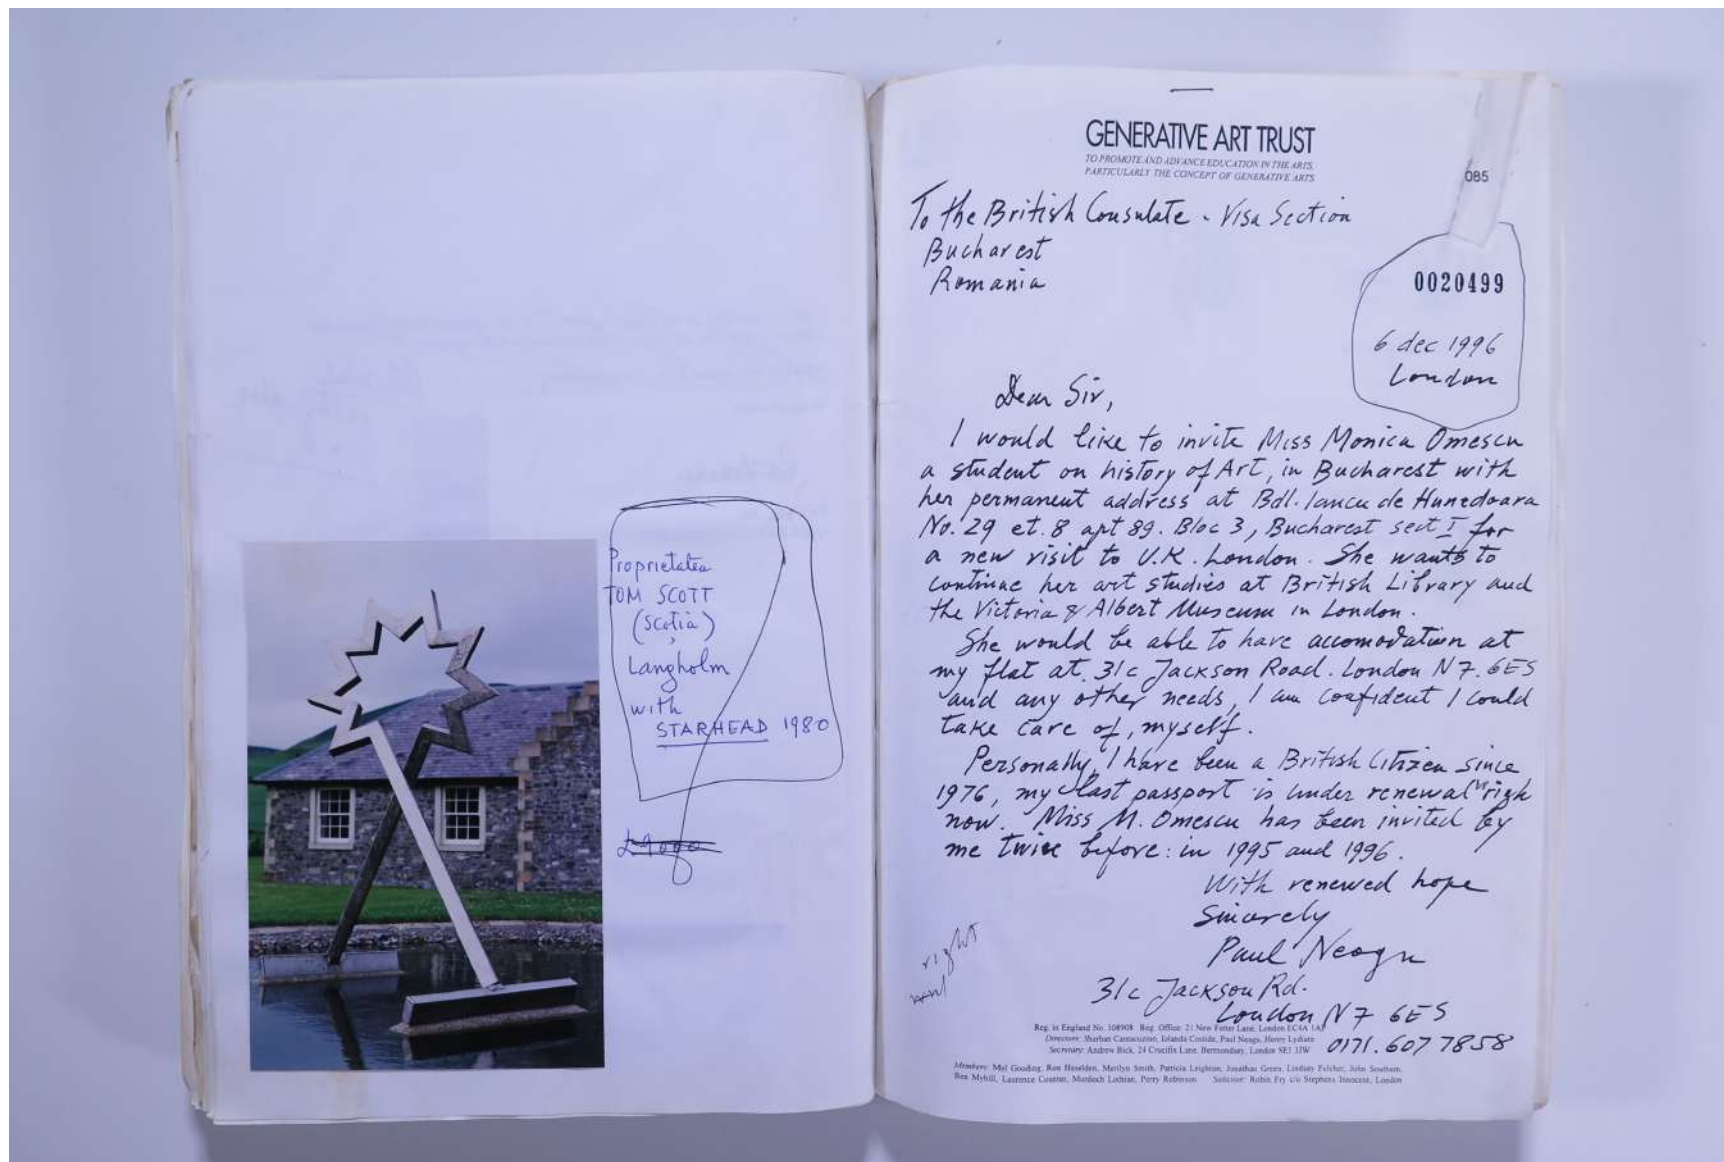 Proprietatea
TOM SCOTT
(Scotia)
Langholm
with
STARHEAD 1980
GENERATIVE ART TRUST
TO PROMOTE AND ADVANCE EDUCATION IN THE ARTS,
PARTICULARLY THE CONCEPT OF GENERATIVE ARTS
085
To the British Consulate - Visa Section
Bucharest
Romania
0020499
6 dec 1996
London
Dear Sir,
I would like to invite Miss Monica Omescu
a student on history of Art, in Bucharest with
her permanent address at Bdl. Iancu de Hunedoara
No. 29 et. 8 apt 89. Bloc 3, Bucharest sect I for
a new visit to U.K. London. She wants to
continue her art studies at British Library and
the Victoria & Albert Museum in London.
She would be able to have accomodation at
my flat at 31c Jackson Road. London N7. 6ES
and any other needs, I am confident I could
take care of, myself.
Personally, I have been a British Citizen since
1976, my last passport is under renewal "righ
now. Miss M. Omescu has been invited by
me twice before: in 1995 and 1996.
With renewed hope
Sincerely
Paul Neagu
right
31c Jackson Rd.
London N7 6ES
0171.607 7858
Reg. in England No. 108908 Reg. Office: 21 New Fetter Lane, London EC4A 1AP
Directors: Sherban Cantacuzino, Iolanda Costide, Paul Neagu, Henry Lydiate
Secretary: Andrew Bick, 24 Crucifix Lane, Bermondsey, London SE1 3JW
Members: Mel Gooding, Ron Haselden, Marilyn Smith, Patricia Leighton, Jonathan Green, Lindsay Fulcher, John Southam,
Ben Myhill, Laurence Counter, Murdoch Lothian, Perry Robinson Solicitor: Robin Fry c/o Stephens Innocent, London